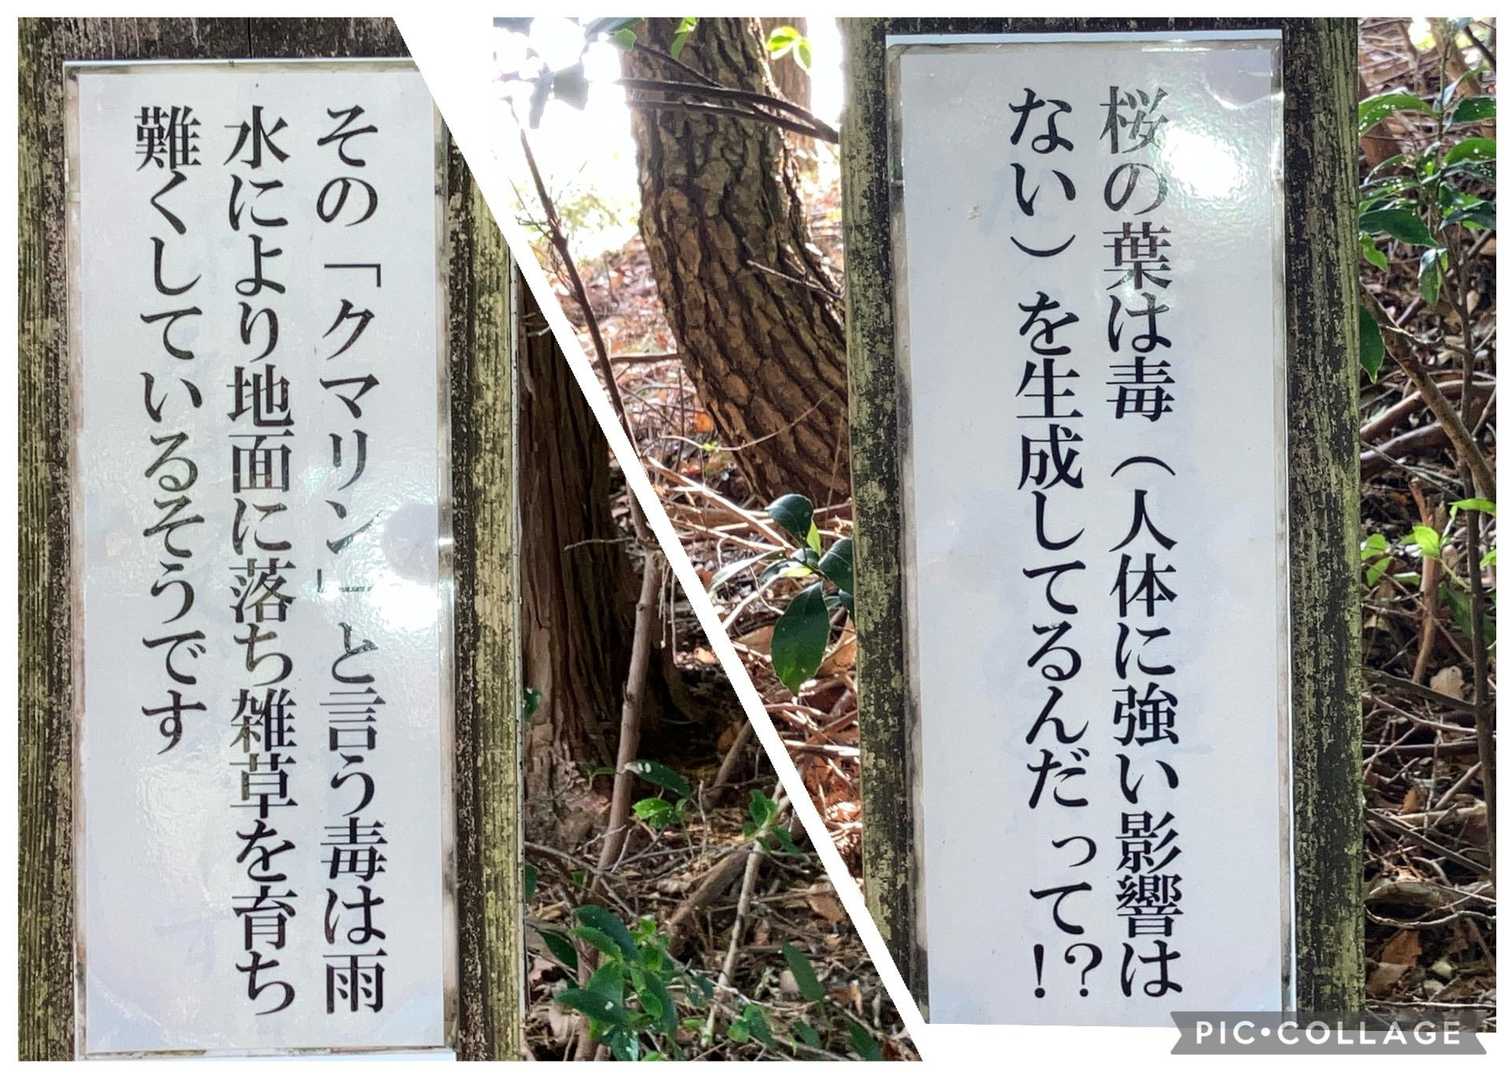 桜の葉は毒（人体に強い影響は
ない）を生成してるんだって!?
その「クマリン」と言う毒は雨
水により地面に落ち雑草を育ち
難くしているそうです
PIC•COLLAGE